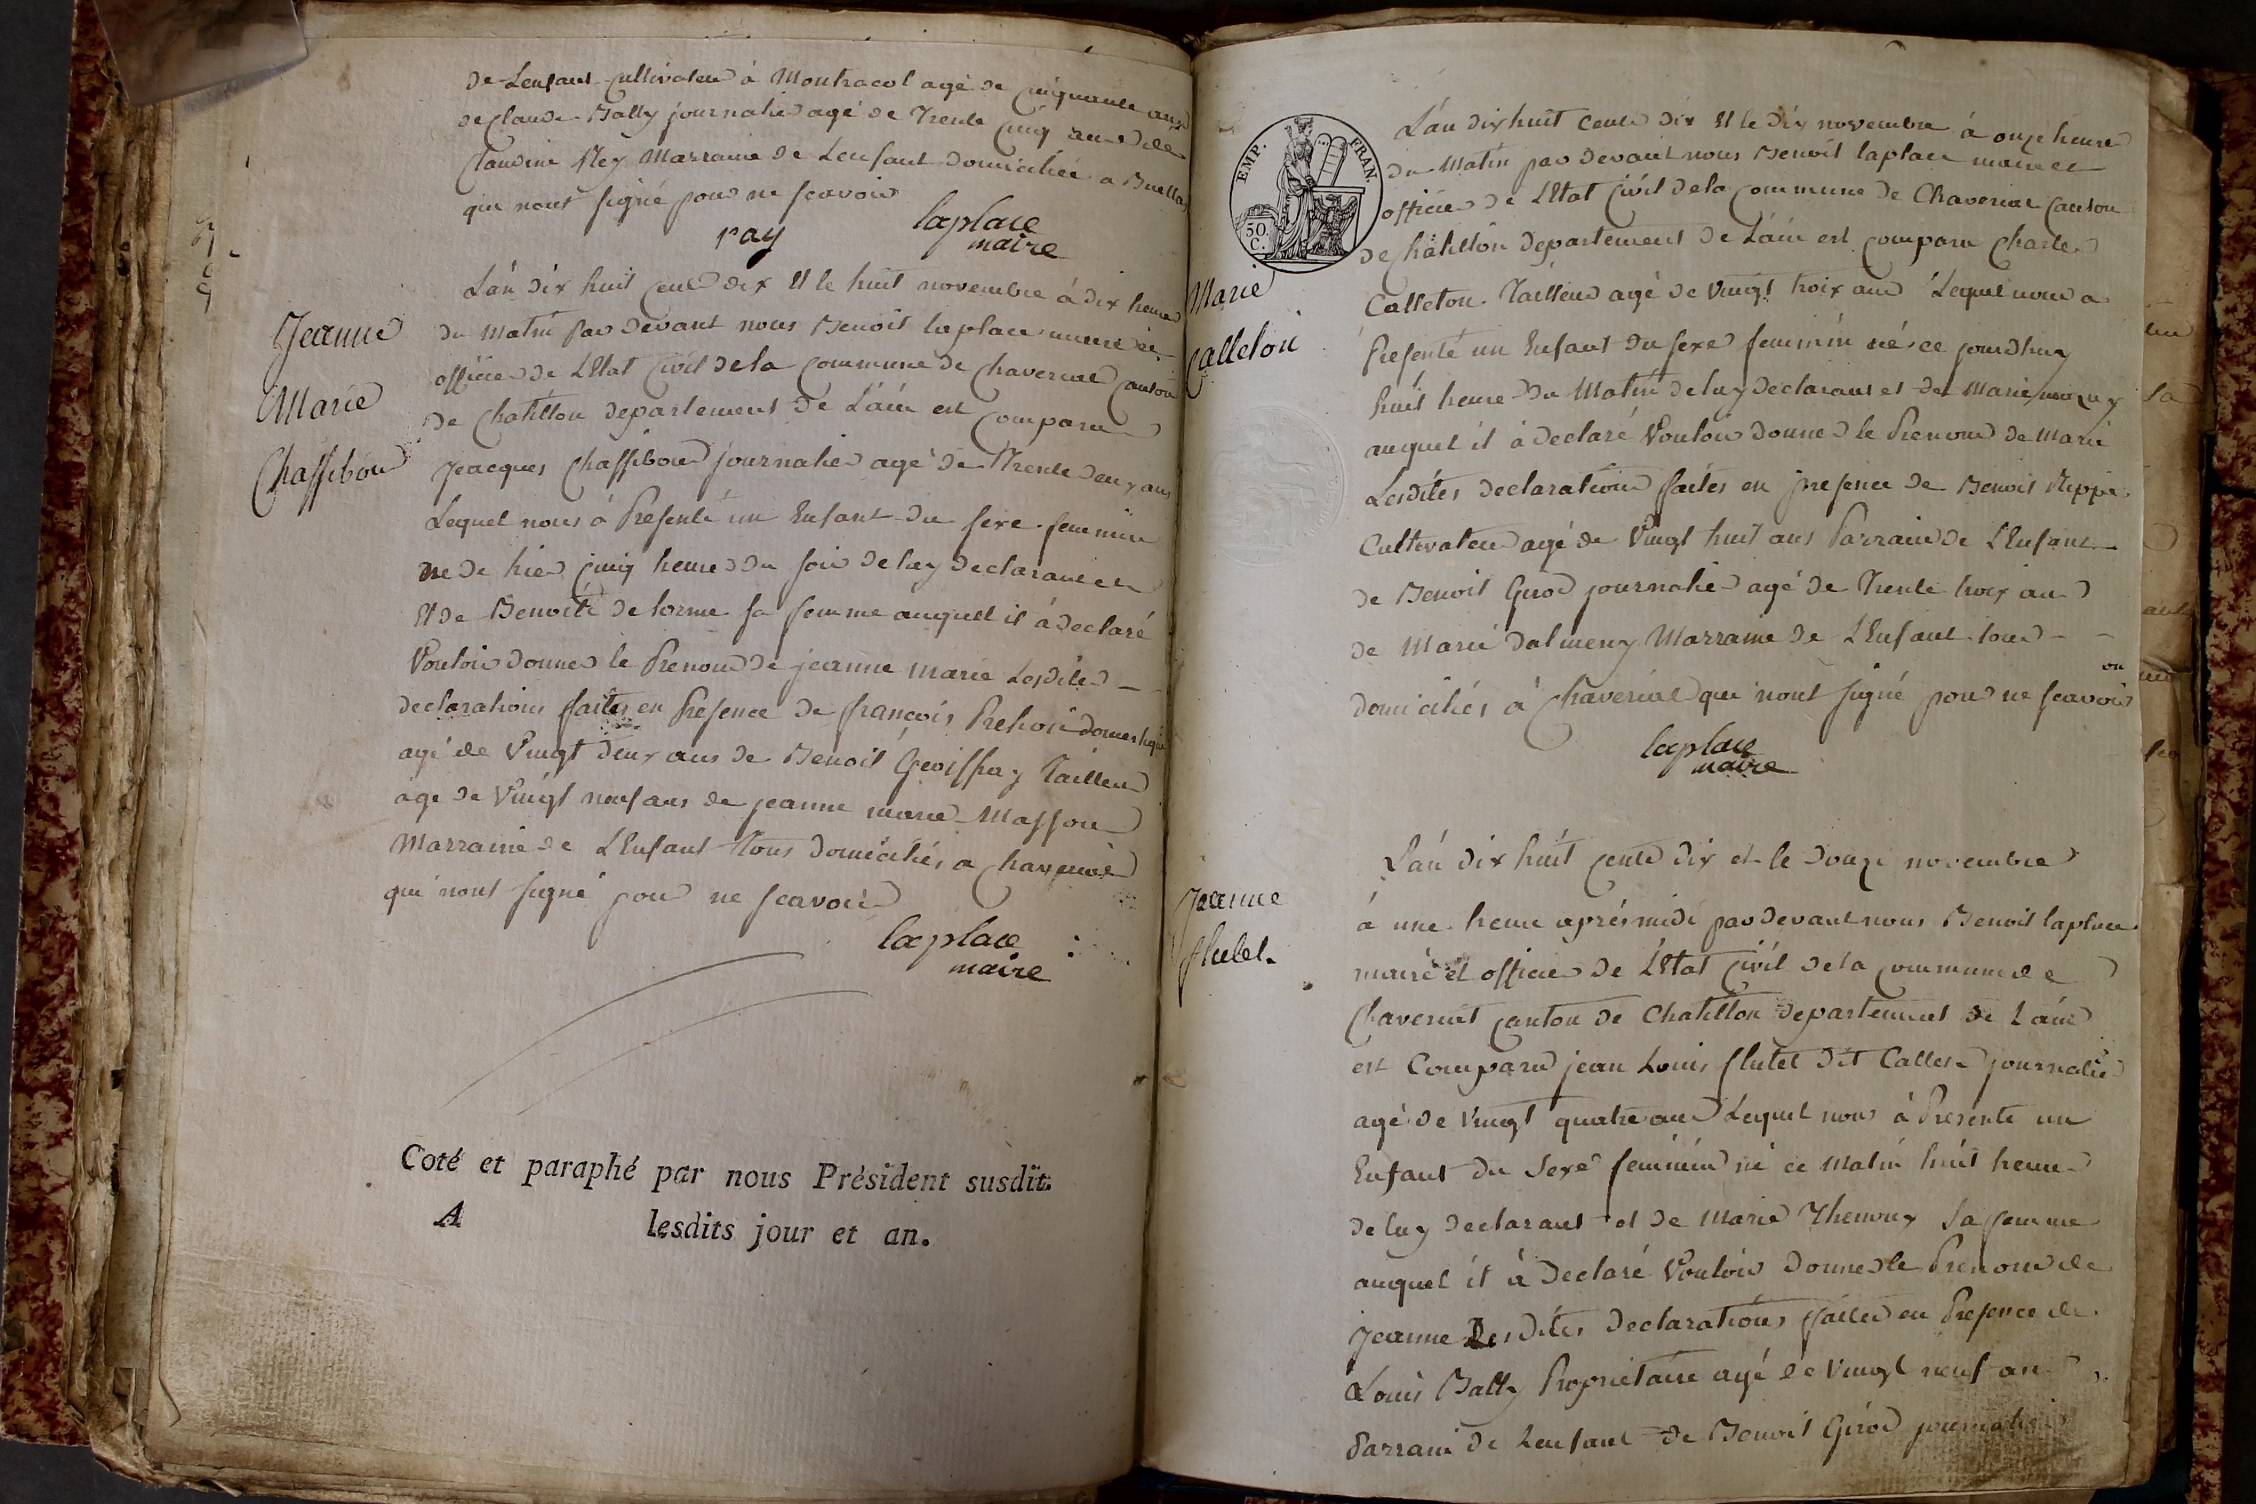 de Lenfant Cultivateur à Montracol agé de Cinquante ans
de Claude Bally journalier agé de Trente Cinq ans et de
Claudine Rey Marraine de Lenfant domiciliée a Buellas
qui nont signé pour ne scavoir
ray laplace
maire
Jeanne
Marie
Chassibou
Lán dix huit cent dix Et le huit novembre à dix heure
du matin par devant nous Benoit laplace maire et
officier de LEtat Civil de la Commune de Chaveriat Canton
de Chatillon departement de Láin est Comparu
Jeacques Chassibou journalier agé de Trente deux ans
Lequel nous à Présenté un Enfant du sexe feminin
né de hier Cinq heure du soir de luy declarant et
Et de Benoite de lorme sa femme auquel il à declaré
Vouloir donner le Prenom de jeanne marie Lesdites
declarations faites en Présence de françois Prehoir domestique
agé de Vingt deux ans de Benoit Geoiffray Tailleur
age de Vingt neuf ans de jeanne marie Masson
Marraine de LEnfant Tous domiciliés a Chaveriat
qui nont signé pour ne scavoir
laplace
maire
Coté et paraphé par nous Président susdit.
A lesdits jour et an.
EMP. FRAN.
50.
C.
Marie
Calleton
Lán dix huit Cent dix Et le dix novembre à onze heure
du Matin par devant nous Benoit laplace maire et
officier de LEtat Civil de la Commune de Chaveriat Canton
de Chatillon departement de Láin est Comparu Charle
Calleton Tailleur agé de Vingt troix ans Lequel nous a
Présenté un Enfant du sexe feminin né ce jourdhuy
huit heure du Matin de luy declarant et de Marie
auquel il à declaré Vouloir donner le Prenom de Marie
Lesdites declarations faites en presence de Benoit Rippe
Cultivateur agé de Vingt huit ans Parrain de LEnfant
de Benoit Girod journalier agé de Trente troix ans
de Marie dalmeny Marraine de LEnfant tous
domiciliés à Chaveriat qui nont signé pour ne scavoir
laplace
maire
Jeanne
flutet
Lán dix huit Cent dix et le douze novembre
à une heure après midi par devant nous Benoit laplace
maire et officier de LEtat Civil de la Commune de
Chaveriat Canton de Chatillon departement de Láin
est Comparu jean Louis flutet dit Callet journalier
agé de Vingt quatre ans Lequel nous à Présenté un
Enfant du Sexe feminin né ce Matin huit heure
de luy declarant et de Marie Thenoux Sa femme
auquel il à declaré Vouloir donner le Prenom de
Jeanne Lesdites declarations faites en Présence de
Louis Bally Propriétaire agé de Vingt neuf an
Parrain de Lenfant de Benoit Girod journalier